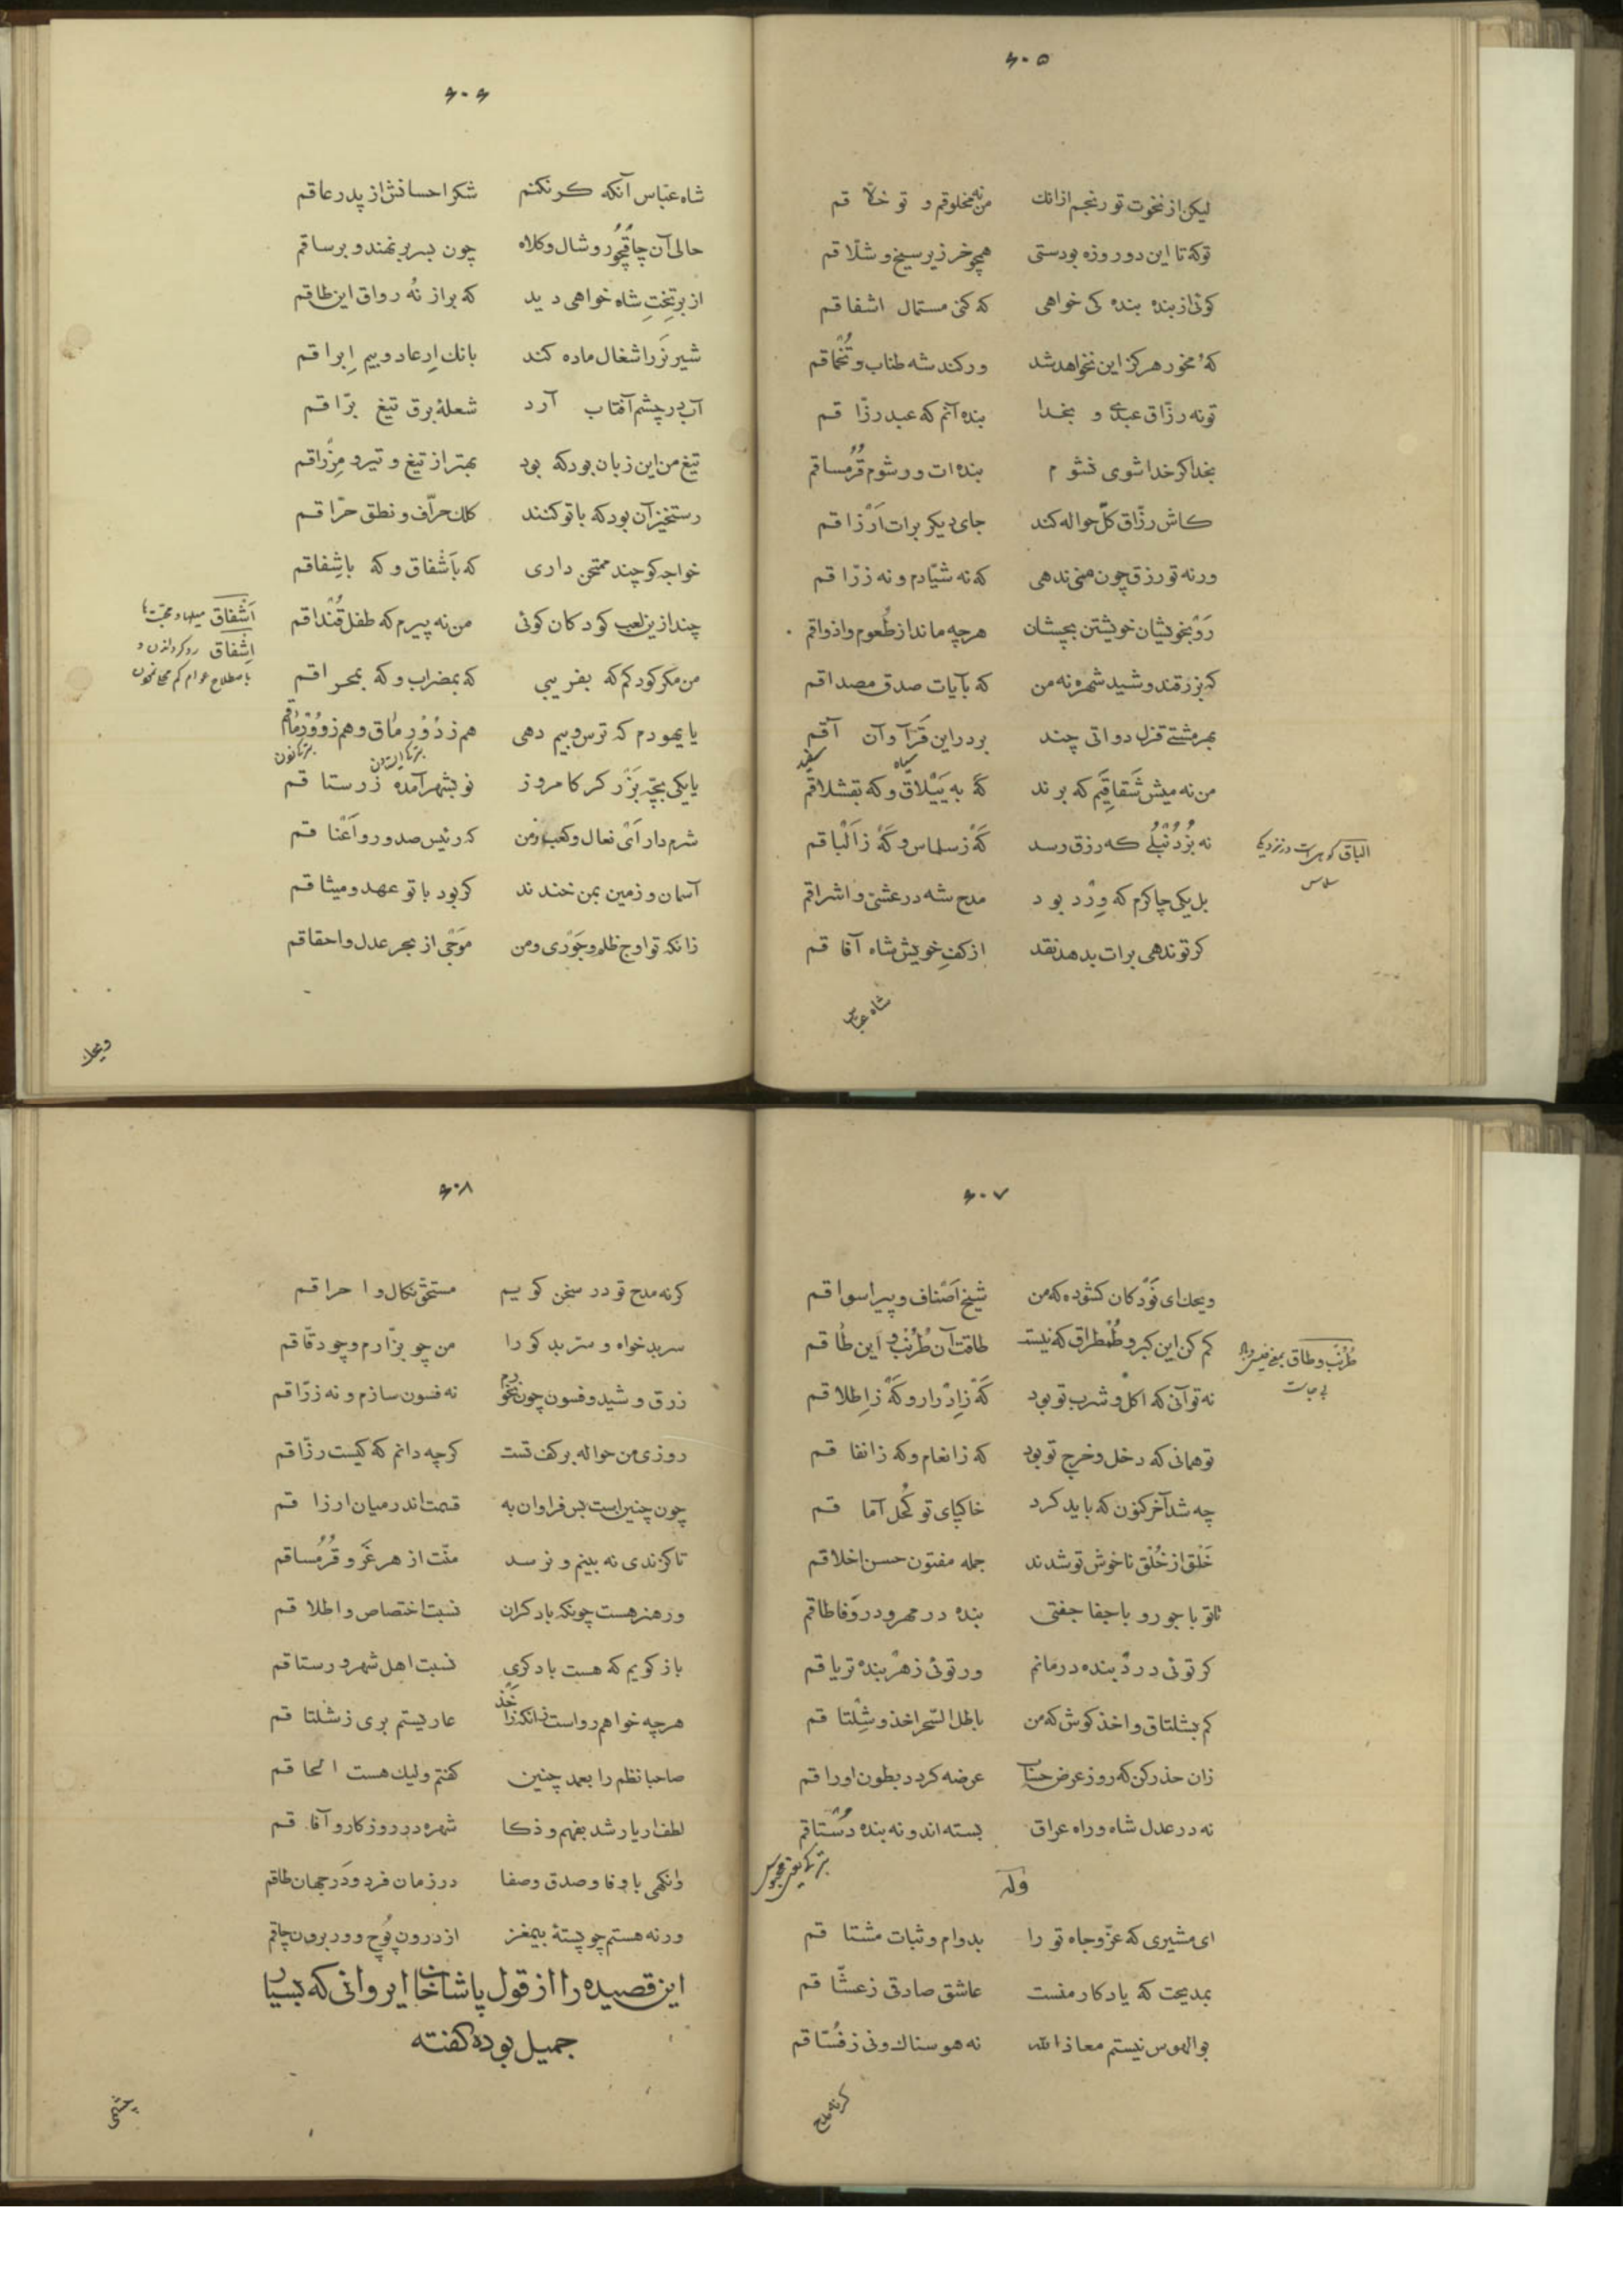 ۶۰۵
لیکن از نخوت تو رنجم از انك من نه مخلوقم و تو خلا قم
توکه تا این دو روزه بودستی همچو خر زیر سیخ و شلاقم
کوئی از بنده بنده کی خواهی که کنی مستمال اشفاقم
که مخور هرکز این نخواهد شد ور کند شه طناب و تخماقم
تو نه رزاق عبدی و بخدا بنده آنم که عبد رزا قم
بخدا کر خدا شوی نشو م بنده ات ور شوم قرمساقم
کاش رزاق کل حواله کند جای دیکر برات ارزا قم
ورنه تو رزق چون منی ندهی که نه شیادم و نه زرا قم
رو بخویشان خویشتن بچشان هرچه ماند از طعوم و اذواقم
که بزرقند و شید شهره نه من که بآیات صدق مصداقم
بهر مشتی قزل دواتی چند بر در این قرا و آن آقم
سیاه سفید
من نه میش شقاقیم که برند که به ییلاق و که بقشلاقم
نه بز دنبلی که رزق رسد که ز سلماس و که ز الباقم
الباق کوهی است در نزدیکی
سلماس
بل یکی چاکرم که ورد بو د مدح شه در عشی و اشراقم
کر تو ندهی برات بدهد نقد از کف خویش شاه آفا قم
شاه عباس
۶۰۶
شاه عباس آنکه کر نکنم شکر احسانش از پدر عاقم
حالی آن چاقچور و شال و کلاه چون بسر بر نهند و بر ساقم
از بر تخت شاه خواهی د ید که براز نه رواق این طاقم
شیر نر را شغال ماده کند بانك ارعاد و بیم ابراقم
آب در چشم آفتاب آرد شعلهٔ برق تیغ برا قم
تیغ من این زبان بود که بود بهتر از تیغ و تیر و مزراقم
رستخیز آن بود که با تو کنند کلك حراف و نطق حرا قم
خواجه کو چند ممتحن داری که باشفاق و که باشفاقم
چند ازین لعب کودکان کوئی من نه پیرم که طفل قنداقم
اشفاق میلها و محبت‌ها
اشفاق رو کردانن و
باصطلاح عوام کم محلی نمودن
من مکر کودکم که بفریبی که بمضراب و که بمحراقم
یا یهودم که ترس و بیم دهی هم ز دؤر ماق و هم ز وورماقم
یا یکی بچه بزر کر کا مروز نو بشهر آمده ز رستا قم
شرم دار ای نعال و کعب ز من که رئیس صدور و اعنا قم
آسمان و زمین بمن خندند کر بود با تو عهد و میثا قم
زانکه تو اوج ظلم و جوری و من موجی از بحر عدل و احقاقم
ویحك
۶۰۷
ویحك ای نودکان کشوده که من شیخ اصناف و پیر اسوا قم
کم کن این کبر و طمطراق که نیست طاقت آن طرنب و این طا قم
طرنب و طاق بمعنی
بی جاست
نه تو آنی که اکل و شرب تو بود که ز ادرار و که ز اطلا قم
تو همانی که دخل و خرج تو بود که ز انعام و که ز انفا قم
چه شد آخر کنون که باید کرد خاکپای تو کحل آما قم
خلق از خلق ناخوش تو شدند جمله مفتون حسن اخلاقم
تا تو با جور و با جفا جفتی بنده در مهر و در وفا طاقم
کر توئی درد بنده درمانم ور توئی زهر بنده تریا قم
کم بشلتاق و اخذ کوش که من باطل السحر اخذ و شلتا قم
زان حذر کن که روز عرض حساب عرضه کردد بطون اوراقم
نه در عدل شاه و راه عراق بسته اند و نه بنده دستاقم
وله
ای مشیری که عز و جاه تو را بدوام و ثبات مشتا قم
بمدیحت که یاد کار منست عاشق صادقی ز عشا قم
بوالهوس نیستم معاذ الله نه هوسناك و نی ز فستاقم
کر نه مدح
۶۰۸
کر نه مدح تو در سخن کویم مستحق نکال و احرا قم
سربد خواه و ستر بد کو را من چو بزارم و چو دقاقم
زرق و شید و فسون چو نخرم نه فسون سازم و نه زراقم
روزی من حواله بر کف تست کرچه دانم که کیست رزاقم
چون چنین است بس فراوان به قسمت اندر میان ارزا قم
تا کزندی نه بینم و نرسد منت از هر غر و قرمساقم
ور هنر هست چونکه باد کران نسبت اختصاص و اطلا قم
باز کویم که هست باد کری نسبت اهل شهر و رستاقم
هرچه خواهم رواست زانکه ز اخذ عاریستم بری ز شلتا قم
صاحبا نظم را بعمد چنین کفتم ولیك هست الحا قم
لطف ار یار شد بفهم و ذکا شهره در روزکار و آفا قم
وانکهی با وفا و صدق و صفا در زمان فرد و در جهان طاقم
ورنه هستم چو پستهٔ بیمغز از درون پوچ و در برون چاقم
این قصیده را از قول پاشا خان ایروانی که بسیار
جمیل بوده کفته
چشمی